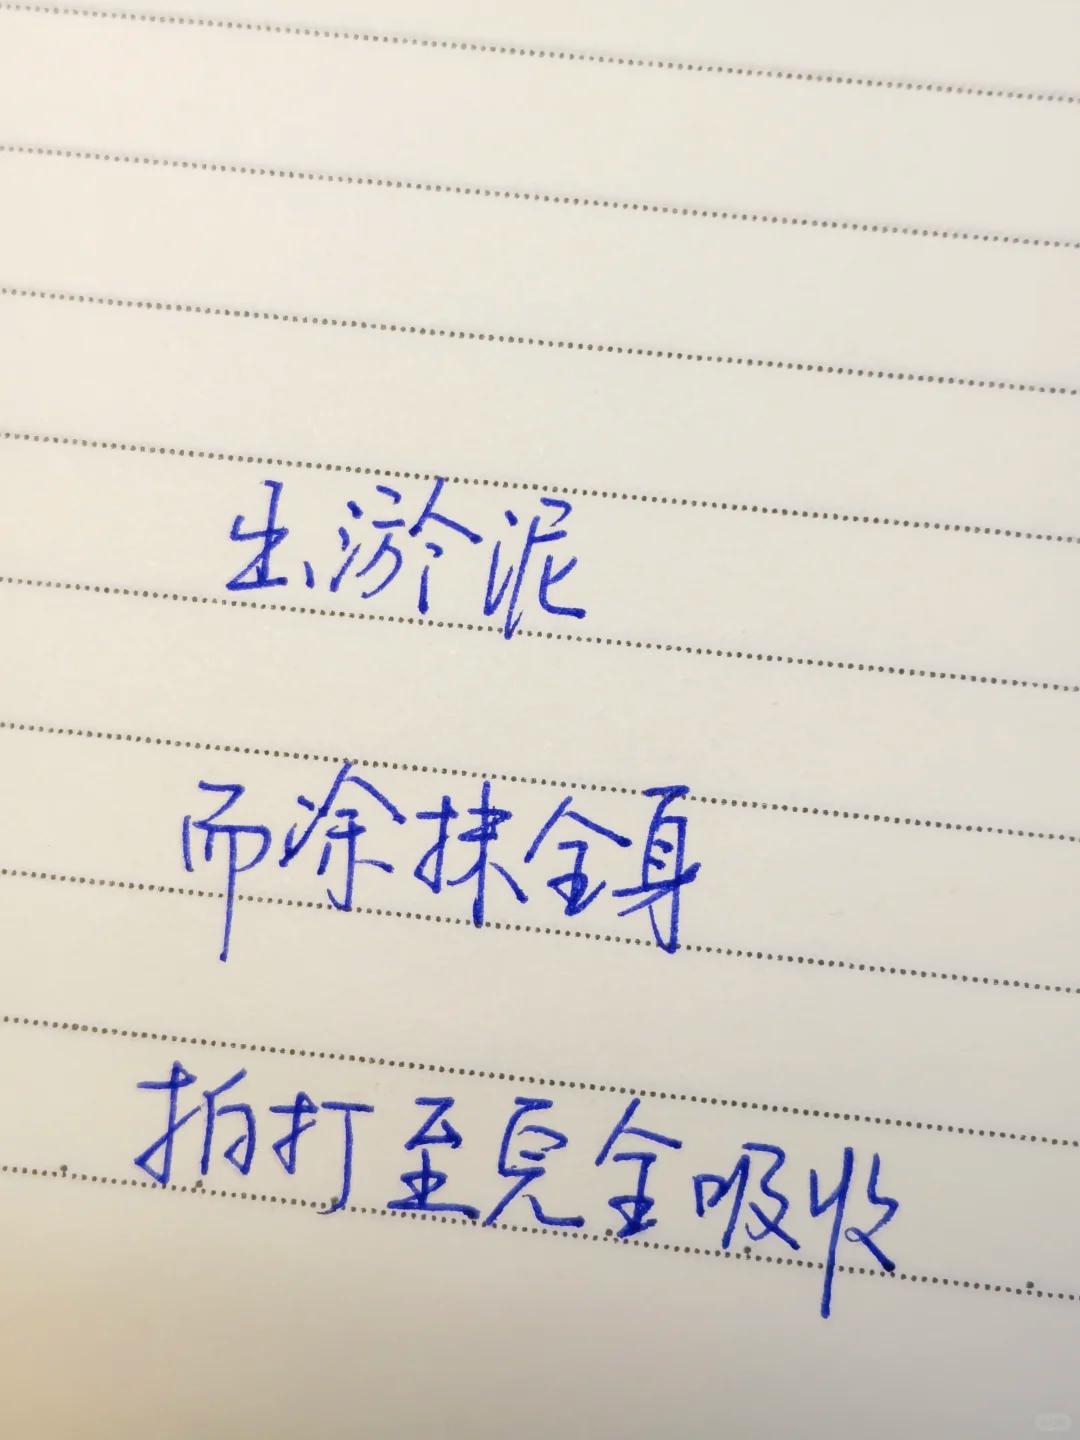 出淤泥
而涂抹全身
拍打至完全吸收